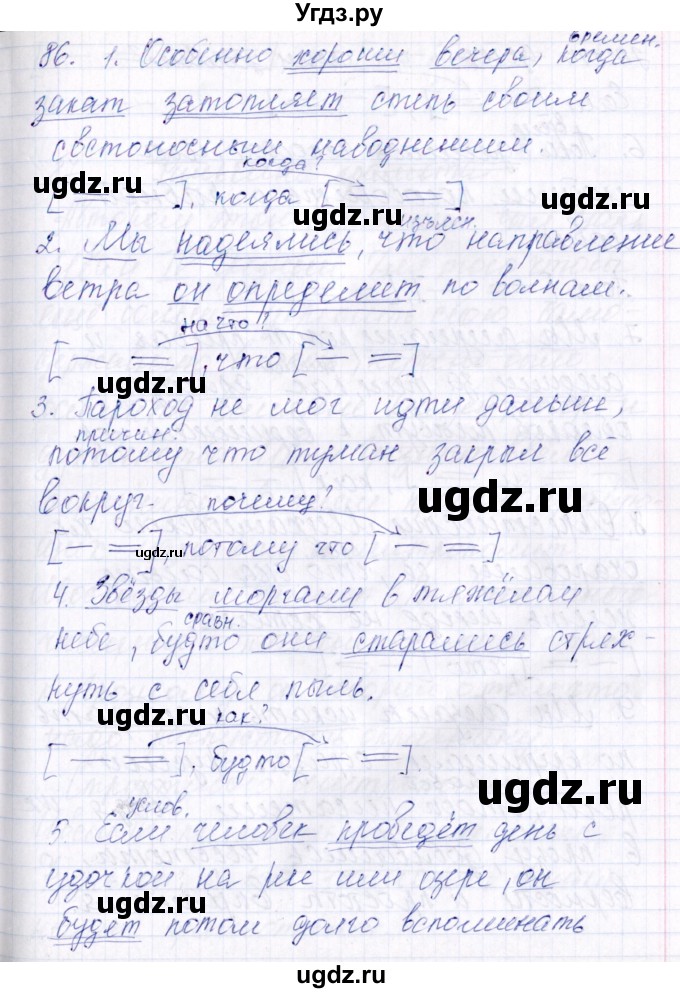 Угдз.ру
времен.
86. 1. Особенно хороши вечера, когда
закат затопляет степь своим
светоносным наводнением.
когда?
[— —], когда [— =]
ugdz.ru ugdz.ru
изъясн.
2. Мы надеялись, что направление
ветра он определит по волнам.
на что?
[— =], что [— =]
ugdz.ru
3. Пароход не мог идти дальше,
причин.
потому что туман закрыл всё
вокруг. почему?
ugdz.ru
[— =], потому что [— =]
ugdz.ru
4. Звёзды моргали в тяжёлом
сравн.
небе, будто они старались стрях-
нуть с себя пыль.
ugdz.ru
как?
[— =], будто [— =].
ugdz.ru
услов.
5. Если человек проведёт день с
удочкой на реке или озере, он
ugdz.ru
будет потом долго вспоминать
ugdz.ru